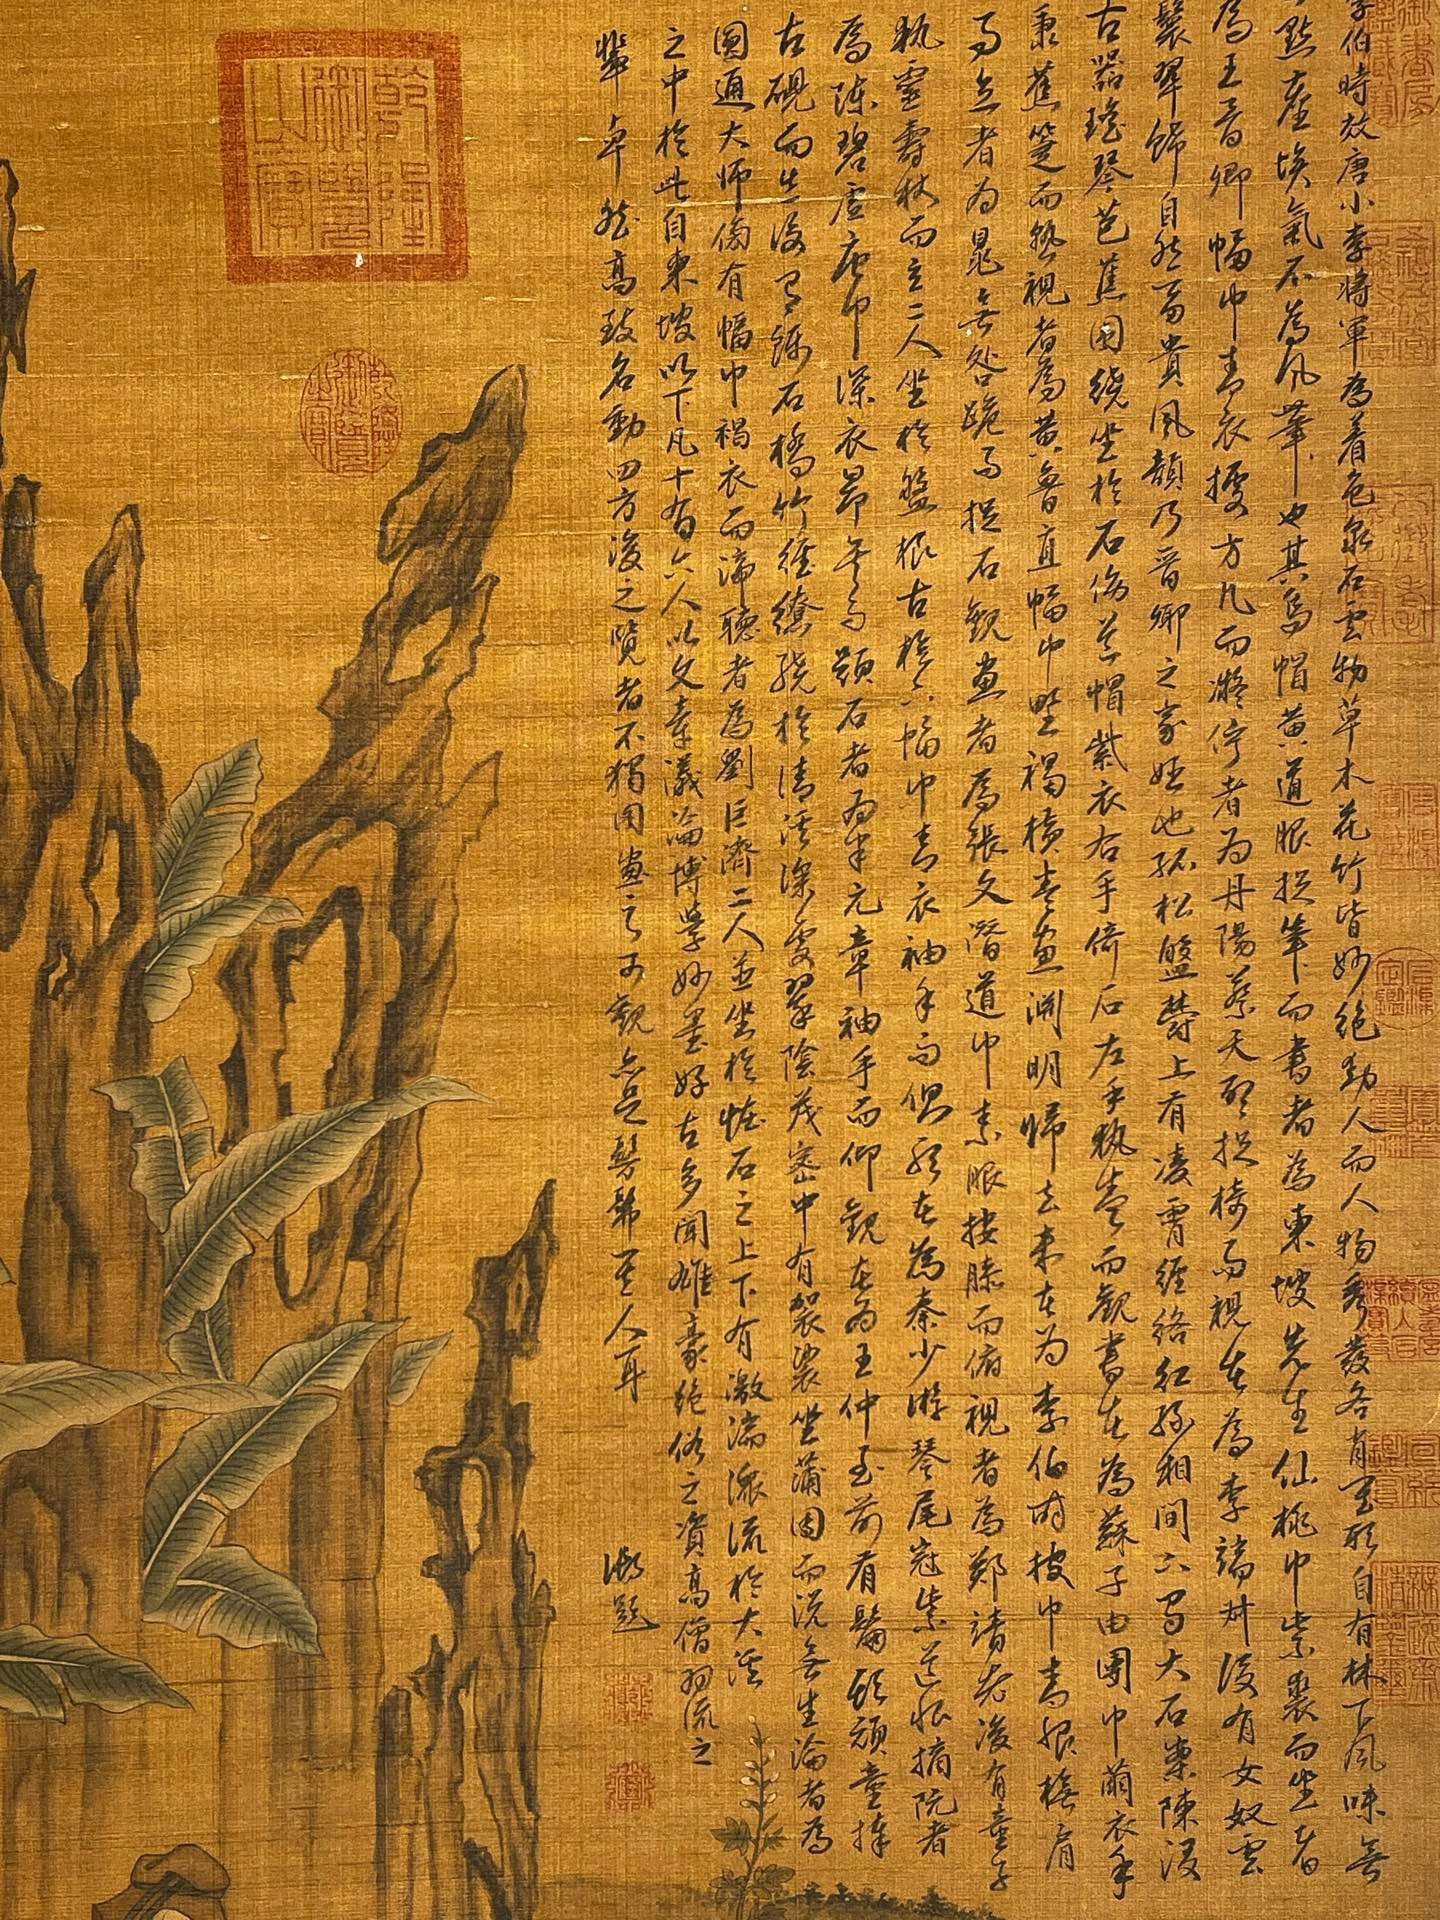 伯時效唐小李將軍為着色泉石雲物草木花竹皆妙絕動人而人物秀發各肖其形自有林下風味無
點塵埃氣不為凡筆也其烏帽黃道服捉筆而書者為東坡先生仙桃巾紫裘而坐者
為王晉卿幅巾青衣據方几而凝佇者為丹陽蔡天啟捉椅而視者為李端叔後有女奴雲
鬟翠飾自然富貴風韻乃晉卿之家姬也孤松盤鬱上有凌霄纏絡紅綠相間下有大石案陳設
古器瑤琴芭蕉圍繞坐於石傍道帽紫衣右手倚石左手執卷而觀書者為蘇子由團巾繭衣手
秉蕉箑而熟視者為黃魯直幅巾野褐橫卷畫淵明歸去來者為李伯時披巾青服撫肩
而立者為晁無咎跪而捉石觀畫者為張文潛道巾素服按膝而俯視者為鄭靖老後有童子
執靈壽杖而立二人坐於盤根古檜下幅巾青衣袖手而側聽者為秦少游琴尾冠紫道服摘阮者
為陳碧虛唐巾深衣昂首而題石者為米元章袖手而仰觀者為王仲至前有鬅頭頑童捧
古硯而立後有錦石橋竹徑繚繞於清溪深處翠陰茂密中有袈裟坐蒲團而說無生論者為
圓通大師傍有幅巾褐衣而諦聽者為劉巨濟二人並坐於怪石之上下有激湍潀流於大溪
之中於此自東坡以下凡十有六人以文章議論博學妙墨好古多聞雄豪絕俗之資高僧羽流之
輩卓然高致名動四方後之覽者不獨圖畫之可觀亦足髣髴其人耳
題
乾隆御覽之寶
乾隆御覽之寶